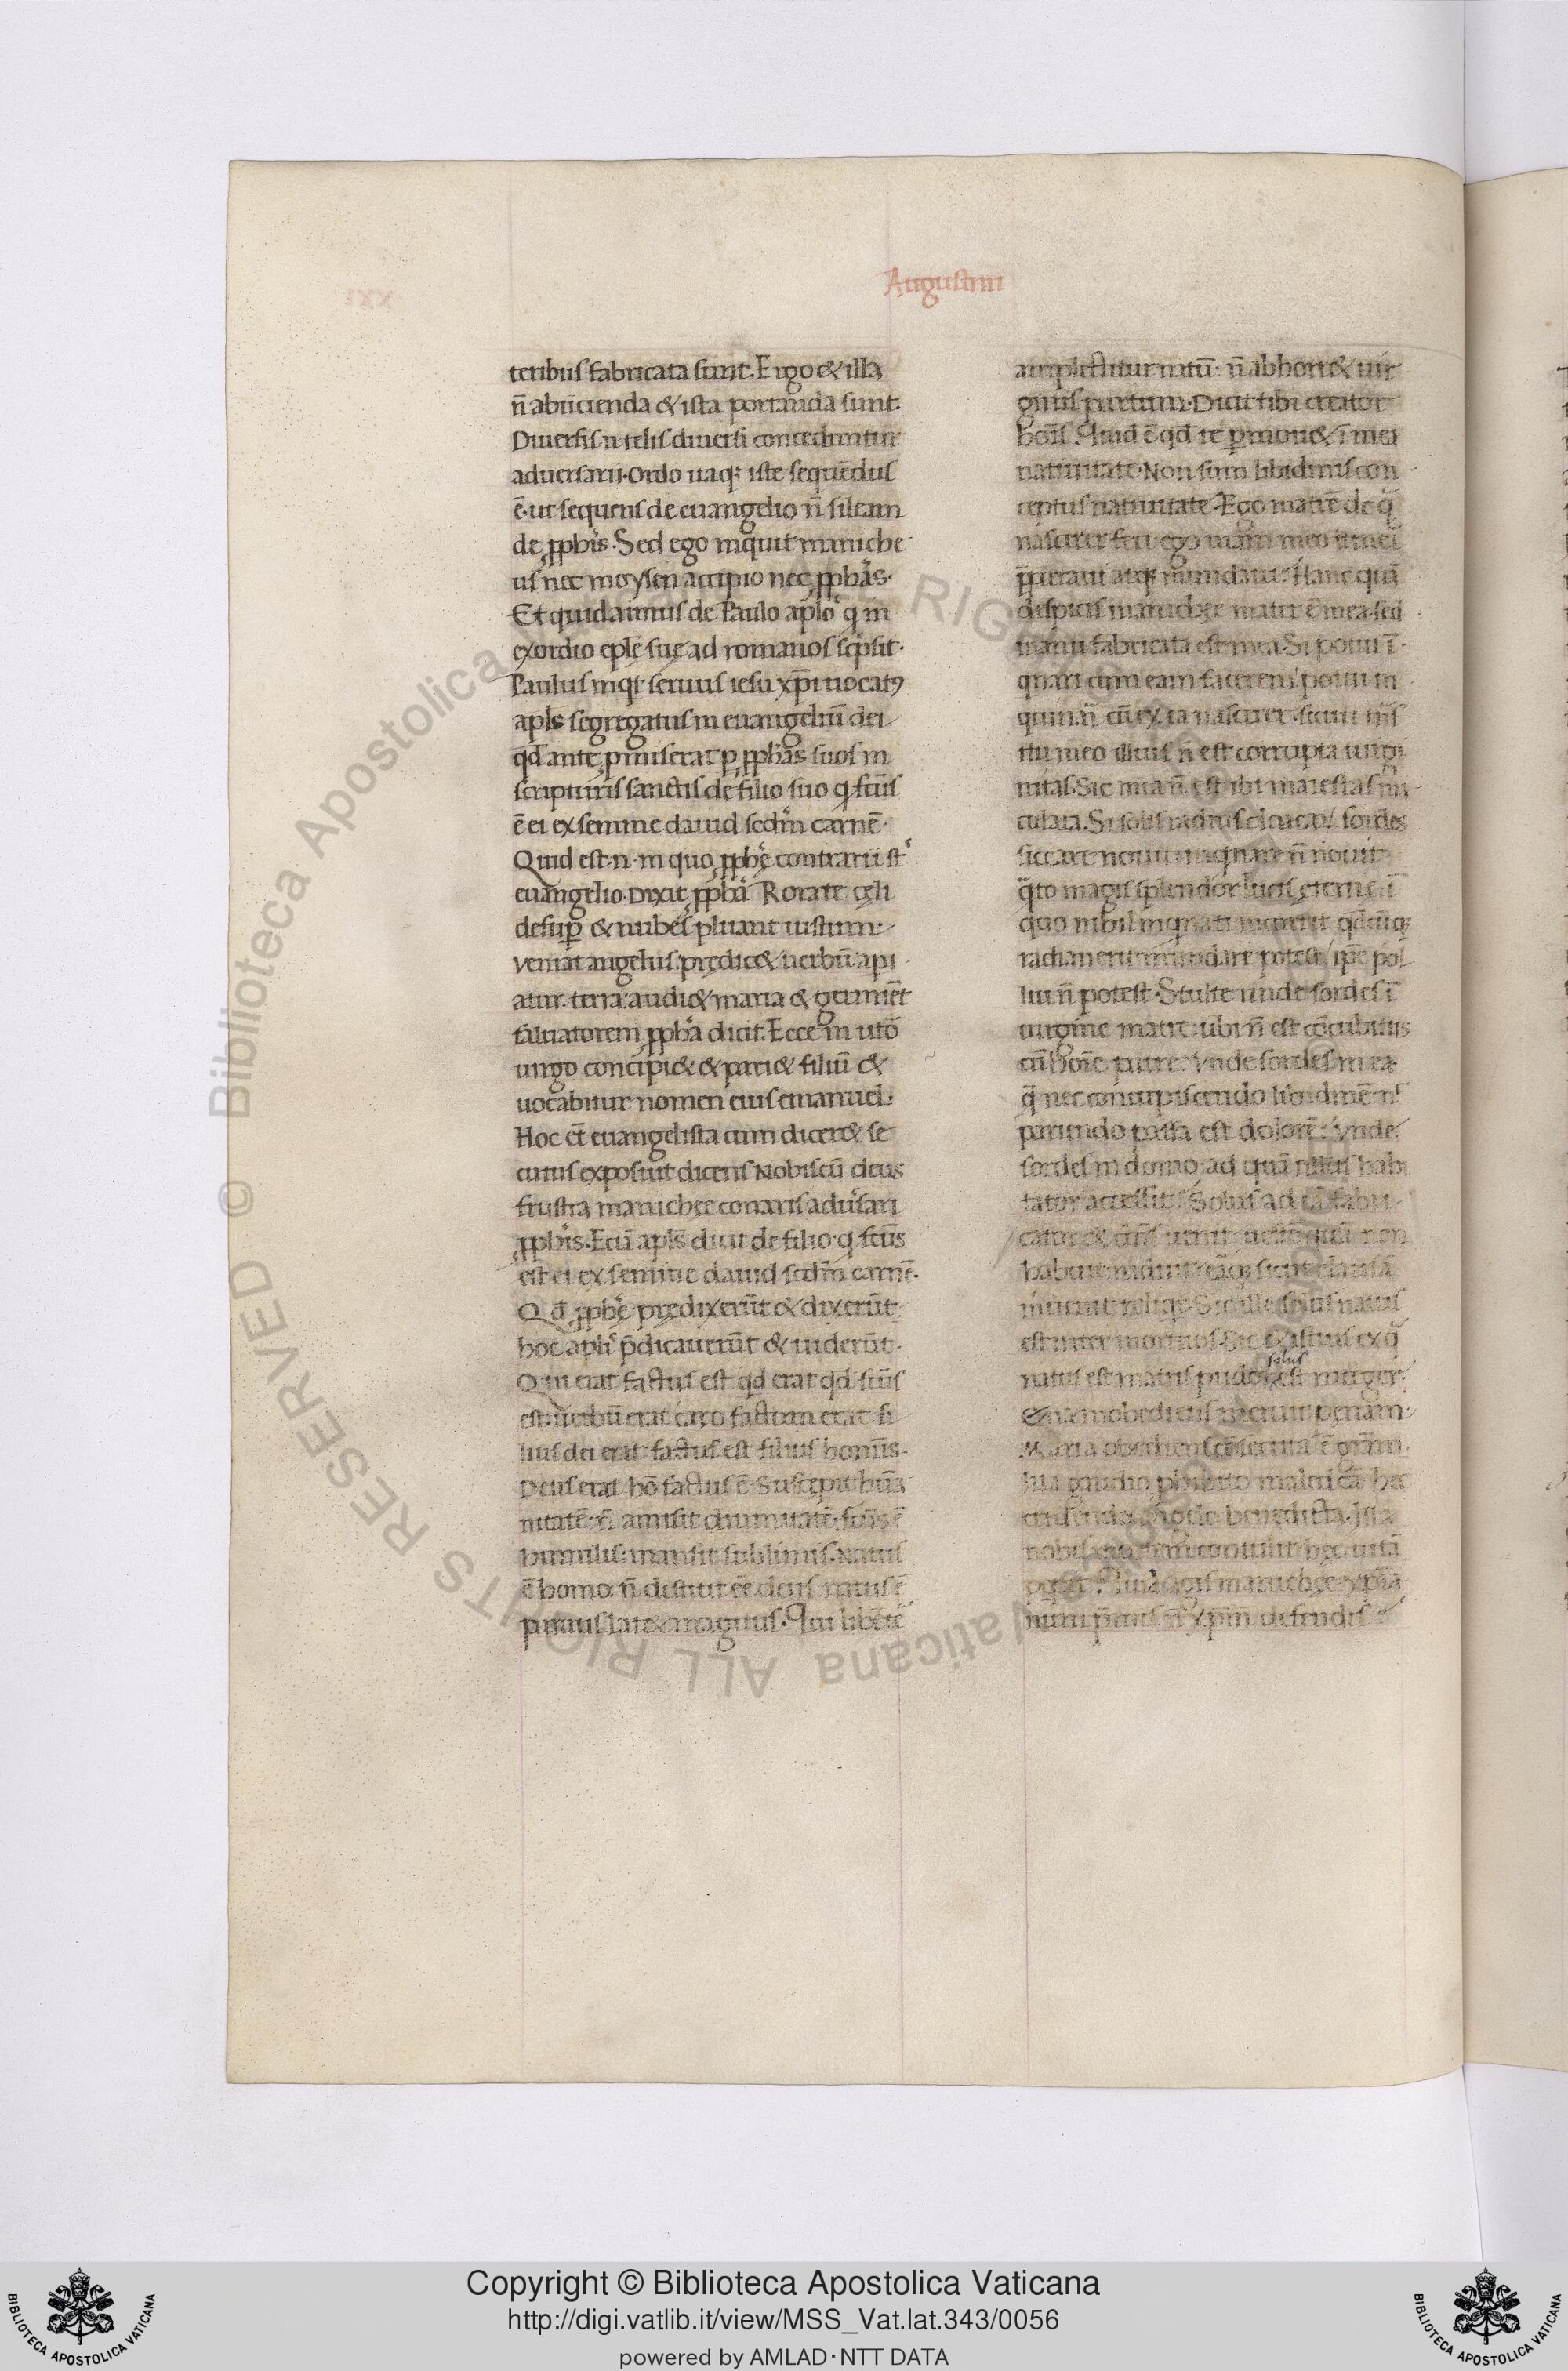 Augustini
teribus fabricata sunt. Ergo & illa
n̄ abiicienda & ista portanda sunt.
Diuersis n telis diuersi conceduntur
aduersarii. Ordo itaq; iste sequēdus
ē. ut sequens de euangelio n̄ sileam
de ꝓph̵is. Sed ego inquit maniche
us nec moysen accipio nec ꝓph̵as.
Et quid aimus de Paulo aplo q̇ in
exordio eplē suę ad romanos sċpsit.
Paulus inqt seruus iesu xp̄i uocatꝰ
apls segregatus in euangeliū dei
qd̄ ante ꝓmiserat ꝑ ꝓph̵as suos in
scripturis sanctis de filio suo q̇ fcūs
ē ei ex semine dauid scdm̄ carnē.
Quid est. n. in quo ꝓph̵ę contrarii st̄
euangelio. Dixit ꝓph̵a Rorate cęli
desuꝑ & nubes pluant iustum.
veniat angelus. prędic& uerbū. api
atur terra. audi& maria & germin̄et
saluatorem ꝓph̵a dicit. Ecce in uto̅
uirgo concipi& & pari& filiū &
uocabitur nomen eius emanuel.
Hoc et̄ euangelista cum dicer& se
cutus exposuit dicens Nobiscū deus
frustra manichęe conaris adūsari
ꝓph̵is. Ecū apls dicit de filio. q̇ fcūs
est ei ex semine dauid scdm̄ carnē.
Qd̄ ꝓph̵ę prędixerūt & dixerūt
hoc apli p̄dicauerūt & uiderūt.
Qui erat factus est qd erat qd̄ fcūs
est. uerbū erat caro factum erat. fi
lius dei erat factus est filius hominis.
Deus erat. hō factus ē. Suscepit hūa
nitatē. n̄ amisit diuinitatē. fcūs ē
humilis. mansit sublimis. Natus
ē homo. n̄ destitit eē deus. natus ē
paruus lat& magnus. Qui libētē
amplectitur natū. n̄ abhorr& uir
ginis partum. Dicit tibi creator
hoīs. Quid ē qd̄ te ꝑmou& ī mei
natiuitate. Non sum libidinis con
ceptus natiuitate. Ego matrē de q̄
nascerer feci. ego uiam meo itineri
p̄paraui atq; mundaui. Hanc quā
despicis manichęe mater ē mea. sed
manu fabricata est mea. Si potui ī
quinari cum eam facerem. potui in
quinari cū ex ea nascerer. sicut trāsi
tu meo illius n̄ est corrupta uirgi
nitas. Sic mea n̄ est ibi maiestas ma
culata. Si solis radius cloacar sordes
siccare nouit. inquinari n̄ nouit
q̄to magis splendor lucis ęternę ī
quo nihil inquinati incurrit qd̄cūq;
radiauerit mundare potest. ip̄e pol
lui n̄ potest. Stulte unde sordes ī
uirgine matre. ubi n̄ est cōcubitus
cū hoīe patre. Vnde sordes in ea
q̄ nec concupiscendo libidinē nec
pariendo passa est dolorē. Vnde
sordes in domo. ad quā nullus habi
tator accessit. Solus ad eā fabri
cator
habuit induit. eāq; sicut clausā
inuenit reliqt. Sic ille solus natus
est inter mortuos. Sic & istius ex q̄
natus est matris pudor solus est integer.
Eua inobediens meruit pęnam.
Maria obediens cōsecuta ē grām.
Illa gaudio phibito maledicta. hęc
credendo angelo benedicta. Illa
nobis mortem contulit. hęc uitā
peperit. Quid agis manichęe. xp̄ia
num ꝑimis n̄ xp̄m defendis
Copyright © Biblioteca Apostolica Vaticana
http://digi.vatlib.it/view/MSS_Vat.lat.343/0056
powered by AMLAD·NTT DATA